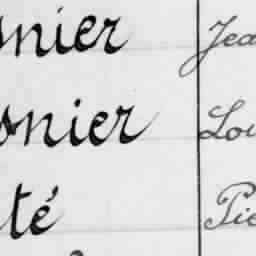 snier Jea
onier Lou
té Pie